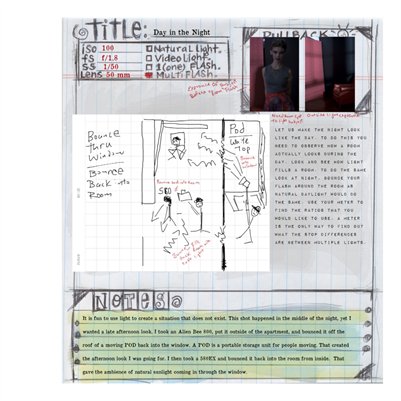 Title: Day in the Night
PULLBACK
iso 100
fs f/1.8
SS 1/50
Lens 50 mm
Natural Light.
Video Light.
1 (one) FLASH.
Multi FLASH.
Bounce
thru
Window
Bounce
Back into
Room
Pod
White
Top
LET US MAKE THE NIGHT LOOK
LIKE THE DAY. TO DO THIS YOU
NEED TO OBSERVE HOW A ROOM
ACTUALLY LOOKS DURING THE
DAY. LOOK AND SEE HOW LIGHT
FILLS A ROOM. TO DO THE SAME
LOOK AT NIGHT, BOUNCE YOUR
FLASH AROUND THE ROOM AS
NATURAL DAYLIGHT WOULD DO
THE SAME. USE YOUR METER TO
FIND THE RATIOS THAT YOU
WOULD LIKE TO USE. A METER
IS THE ONLY WAY TO FIND OUT
WHAT THE STOP DIFFERENCES
ARE BETWEEN MULTIPLE LIGHTS.
Notes
It is fun to use light to create a situation that does not exist. This shot happened in the middle of the night, yet I
wanted a late afternoon look. I took an Alien Bee 800, put it outside of the apartment, and bounced it off the
roof of a moving POD back into the window. A POD is a portable storage unit for people moving. That created
the afternoon look I was going for. I then took a 580EX and bounced it back into the room from inside. That
gave the ambience of natural sunlight coming in through the window.